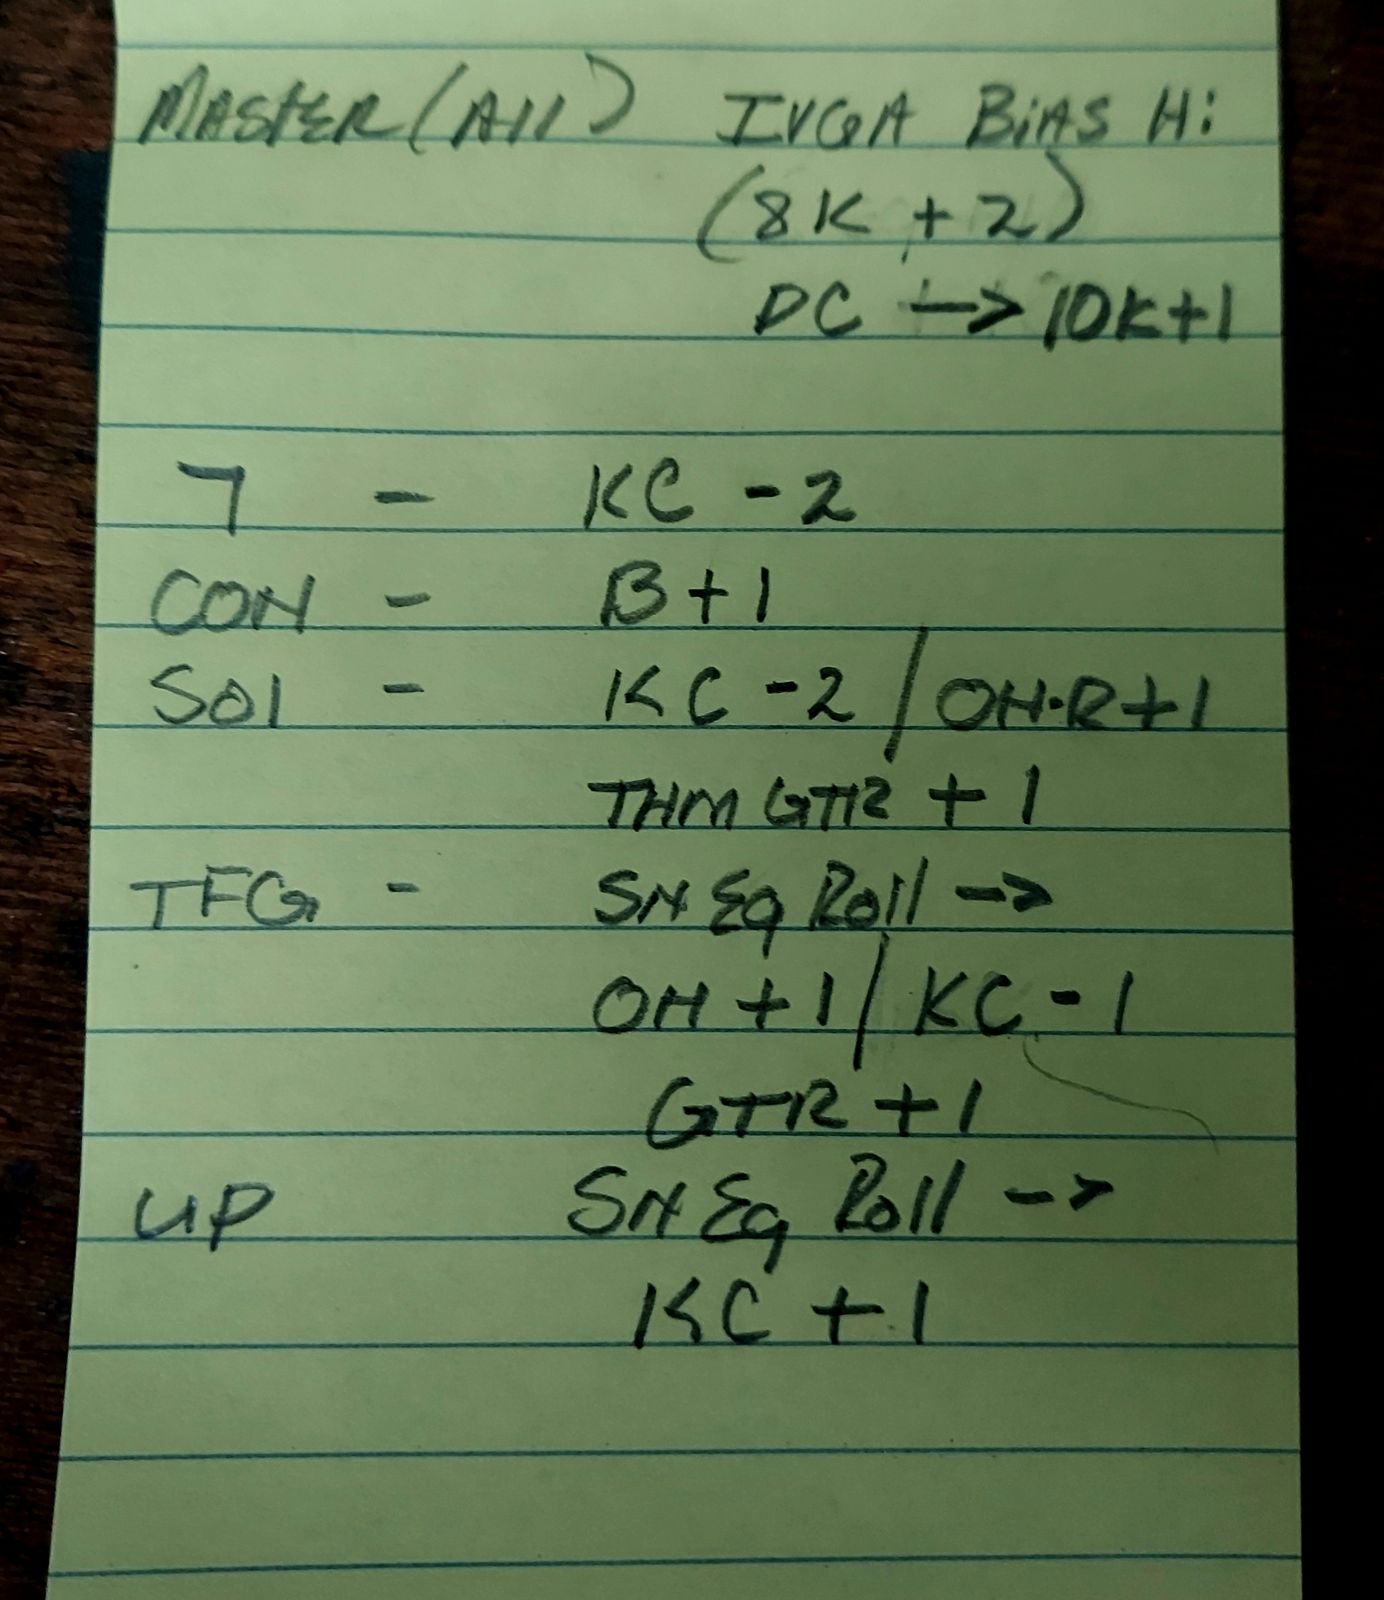 MASTER (All) IVGA BiAS Hi
(8K + 2)
DC -> 10K+1
7 - KC - 2
CON - B + 1
SOl - KC - 2 / OH·R + 1
THM GTR + 1
TFG - SN Eq Roll ->
OH + 1 / KC - 1
GTR + 1
UP SN Eq Roll ->
KC + 1